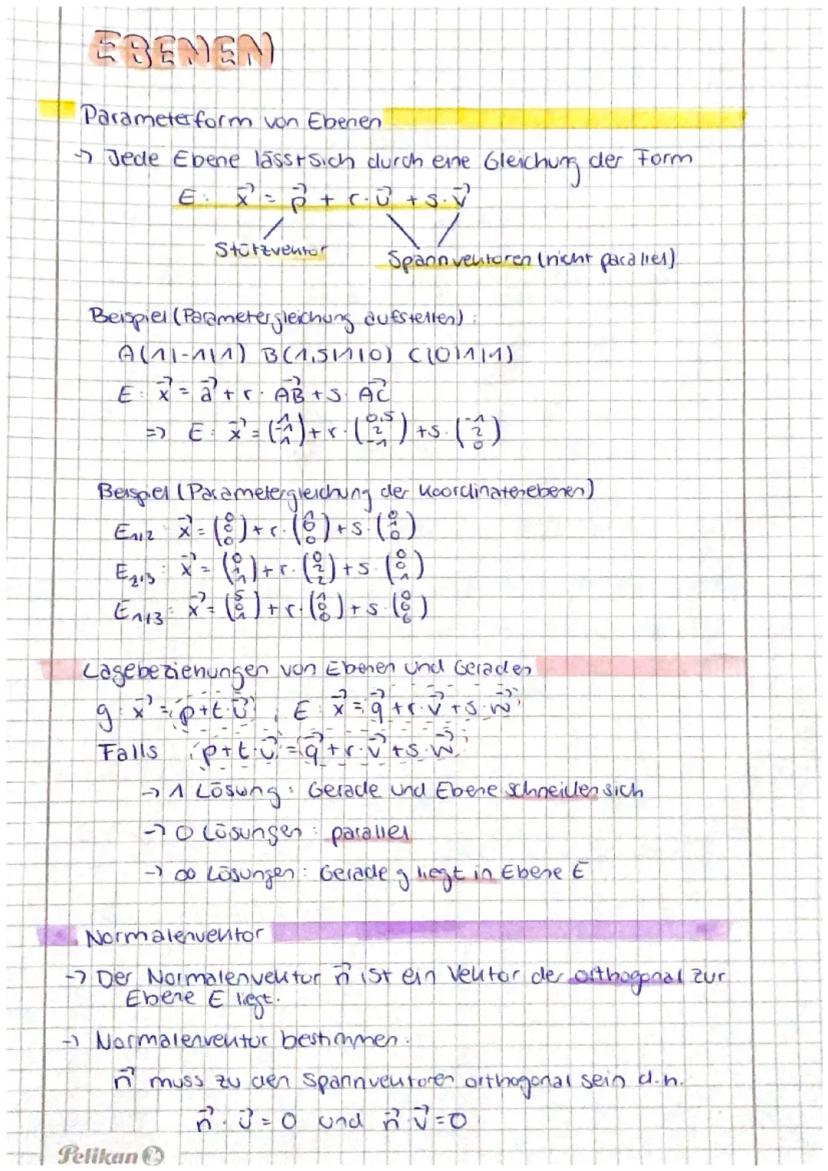 EBENEN
Parameterform von Ebenen
→ Jede Ebene lässt sich durch eine Gleichung der Form
E: x⃗ = p⃗ + r · u⃗ + s · v⃗
Stützvektor Spannvektoren (nicht parallel)
Beispiel (Parametergleichung aufstellen):
A(1|-1|1) B(1,5|1|0) C(0|1|1)
E: x⃗ = a⃗ + r · AB⃗ + s · AC⃗
=> E: x⃗ = (1 -1 1) + r · (0,5 2 -1) + s · (-1 2 0)
Beispiel (Parametergleichung der Koordinatenebenen)
E1,2: x⃗ = (0 0 0) + r · (1 0 0) + s · (0 1 0)
E2,3: x⃗ = (0 1 1) + r · (0 2 2) + s · (0 0 1)
E1,3: x⃗ = (5 0 1) + r · (1 0 0) + s · (0 0 6)
Lagebeziehungen von Ebenen und Geraden
g: x⃗ = p + t · u⃗, E: x⃗ = q⃗ + r · v⃗ + s · w⃗
Falls p + t · u⃗ = q⃗ + r · v⃗ + s · w⃗
→ 1 Lösung: Gerade und Ebene schneiden sich
→ 0 Lösungen: parallel
→ ∞ Lösungen: Gerade g liegt in Ebene E
Normalenvektor
→ Der Normalenvektor n⃗ ist ein Vektor der orthogonal zur
Ebene E liegt.
→ Normalenvektor bestimmen:
n⃗ muss zu den Spannvektoren orthogonal sein d.h.
n⃗ · u⃗ = 0 und n⃗ · v⃗ = 0
Pelikan